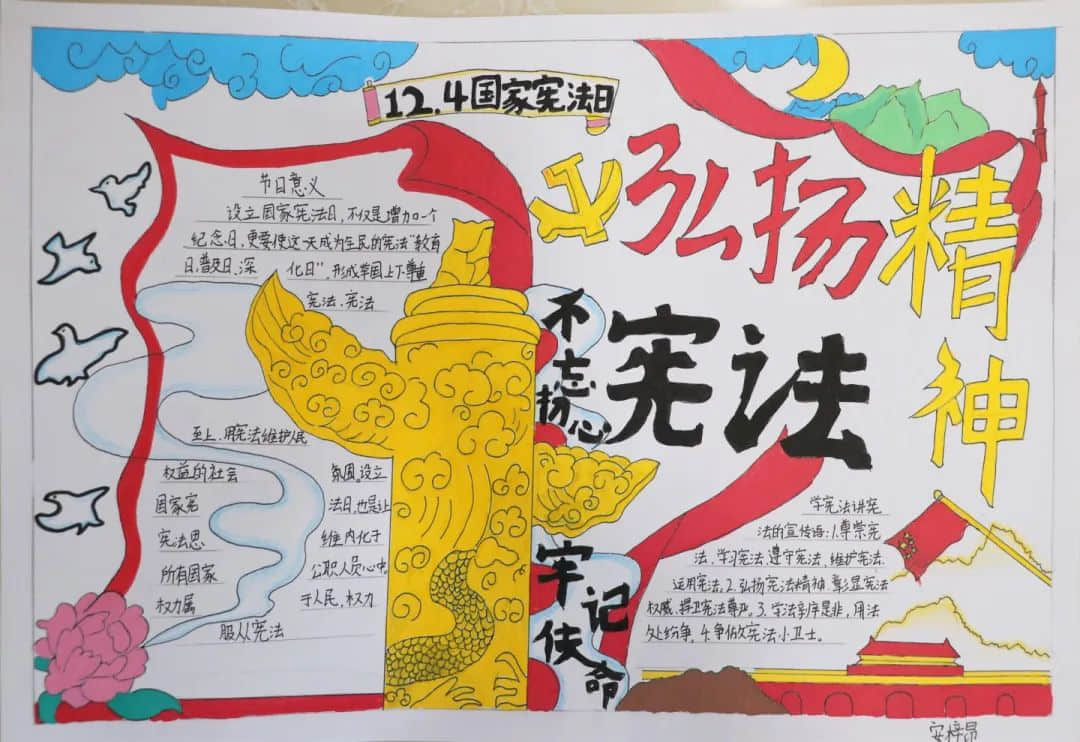 12.4国家宪法日
弘扬
精神
宪法
不忘初心
牢记使命
节日意义
设立国家宪法日,不仅是增加一个
纪念日,更要使这一天成为全民的宪法“教育
日,普及日,深 化日”,形成举国上下尊重
宪法、宪法
至上、用宪法维护人民
权益的社会 氛围。设立
国家宪 法日,也是让
宪法思 维内化于
所有国家 公职人员心中。
权力属 于人民,权力
服从宪法
学宪法讲宪
法的宣传语:1.尊崇宪
法、学习宪法、遵守宪法、维护宪法、
运用宪法。2.弘扬宪法精神,彰显宪法
权威,捍卫宪法尊严。3.学法享是非,用法
处纷争。4.争做宪法小卫士。
安梓昂